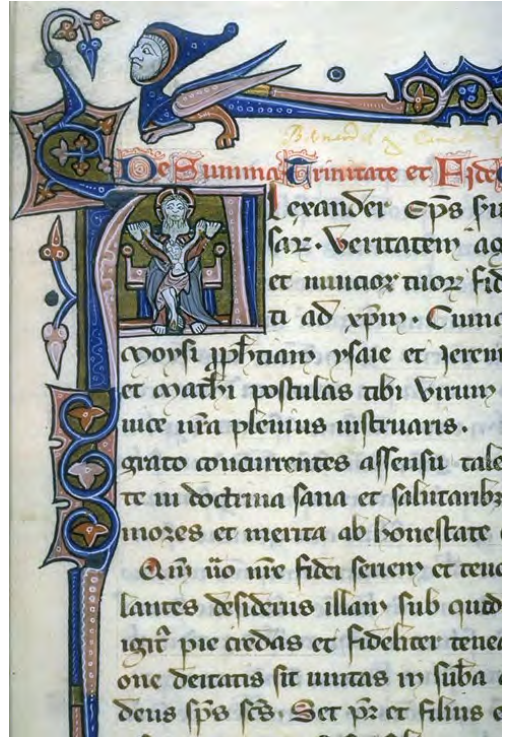 De Summa Trinitate et Fide
Alexander Eps su
sax. Veritatem ag
et nuncioꝝ tuoꝝ fid
ti ad xp̄m. Cumq
Moysi ꝓphetiam ysaie et Jerem
et Mathi postulas tibi virum
uice nr̄a plenius instruaris.
grato concurrentes assensu tale
te in doctrina sana et salutaribꝫ
mores et merita ab honestate
Qm̄ u̅o nr̄e fidei seriem et tenō
lantes desiderius illam sub quod
igit̄ pie credas et fideliter tenea
one deitatis sit unitas in sub̄a
deus sp̄s sc̄s. Set pr̄ et filius e